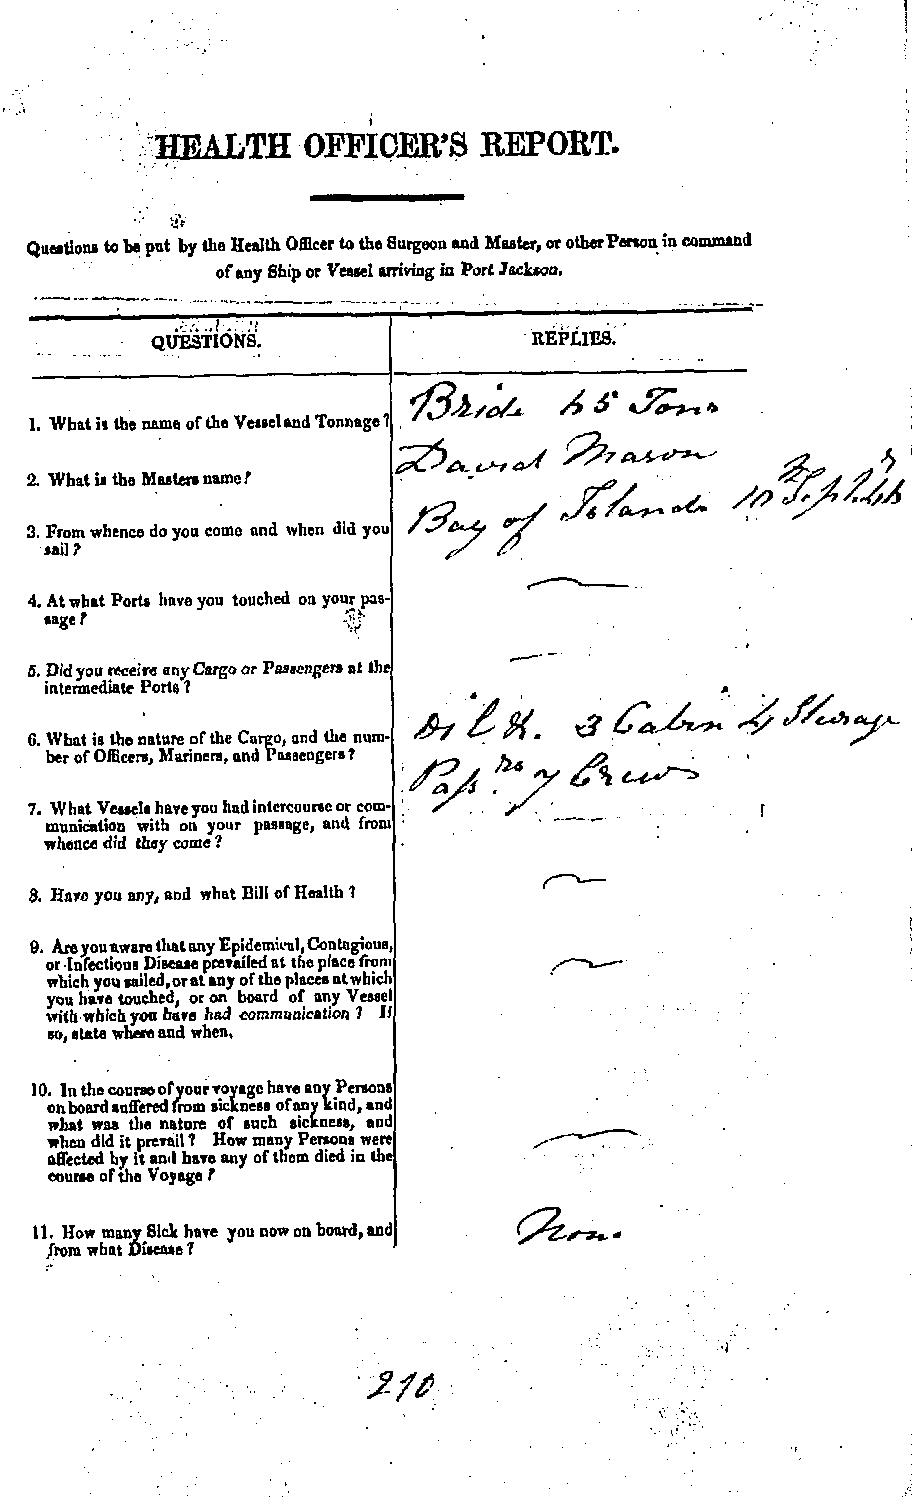 HEALTH OFFICER'S REPORT.
Questions to be put by the Health Officer to the Surgeon and Master, or other Person in command
of any Ship or Vessel arriving in Port Jackson.
QUESTIONS.
REPLIES.
1. What is the name of the Vessel and Tonnage?
Bride 65 Tons
2. What is the Masters name?
David Mason
3. From whence do you come and when did you
sail?
Bay of Islands 10
4. At what Ports have you touched on your pas-
sage?
5. Did you receive any Cargo or Passengers at the
intermediate Ports?
6. What is the nature of the Cargo, and the num-
ber of Officers, Mariners, and Passengers?
Oil &. 3 Cabin 4 Steerage
Passrs. 7 Crew
7. What Vessels have you had intercourse or com-
munication with on your passage, and from
whence did they come?
8. Have you any, and what Bill of Health?
9. Are you aware that any Epidemical, Contagious,
or Infectious Disease prevailed at the place from
which you sailed, or at any of the places at which
you have touched, or on board of any Vessel
with which you have had communication? If
so, state where and when.
10. In the course of your voyage have any Persons
on board suffered from sickness of any kind, and
what was the nature of such sickness, and
when did it prevail? How many Persons were
affected by it and have any of them died in the
course of the Voyage?
11. How many Sick have you now on board, and
from what Disease?
None
210